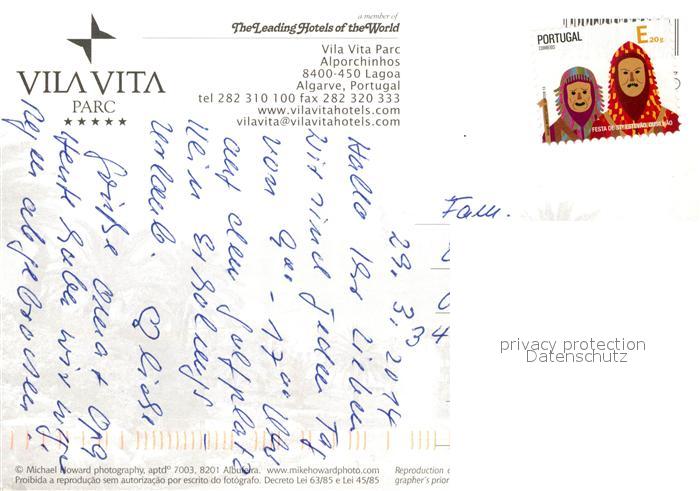 a member of
The Leading Hotels of the World
VILA VITA
PARC
Vila Vita Parc
Alporchinhos
8400-450 Lagoa
Algarve, Portugal
tel 282 310 100 fax 282 320 333
www.vilavitahotels.com
vilavita@vilavitahotels.com
PORTUGAL
CORREIOS
E 20g
FESTA DE STº ESTEVÃO, OUSILHÃO
Fam.
29.3.2014
Hallo Ihr Lieben
Wir sind jeden Tag
von 9⁰⁰ - 17⁰⁰ Uhr
auf dem Golfplatz
Kein Erholungs
Urlaub. Liebe
Grüße Oma + Opa
Heute haben wir wegen
Regen abgebrochen.
4
privacy protection
Datenschutz
© Michael Howard photography, aptdº 7003, 8201 Albufeira. www.mikehowardphoto.com
Reproduction
Proibida a reprodução sem autorização por escrito do fotógrafo. Decreto Lei 63/85 e Lei 45/85
grapher's prior